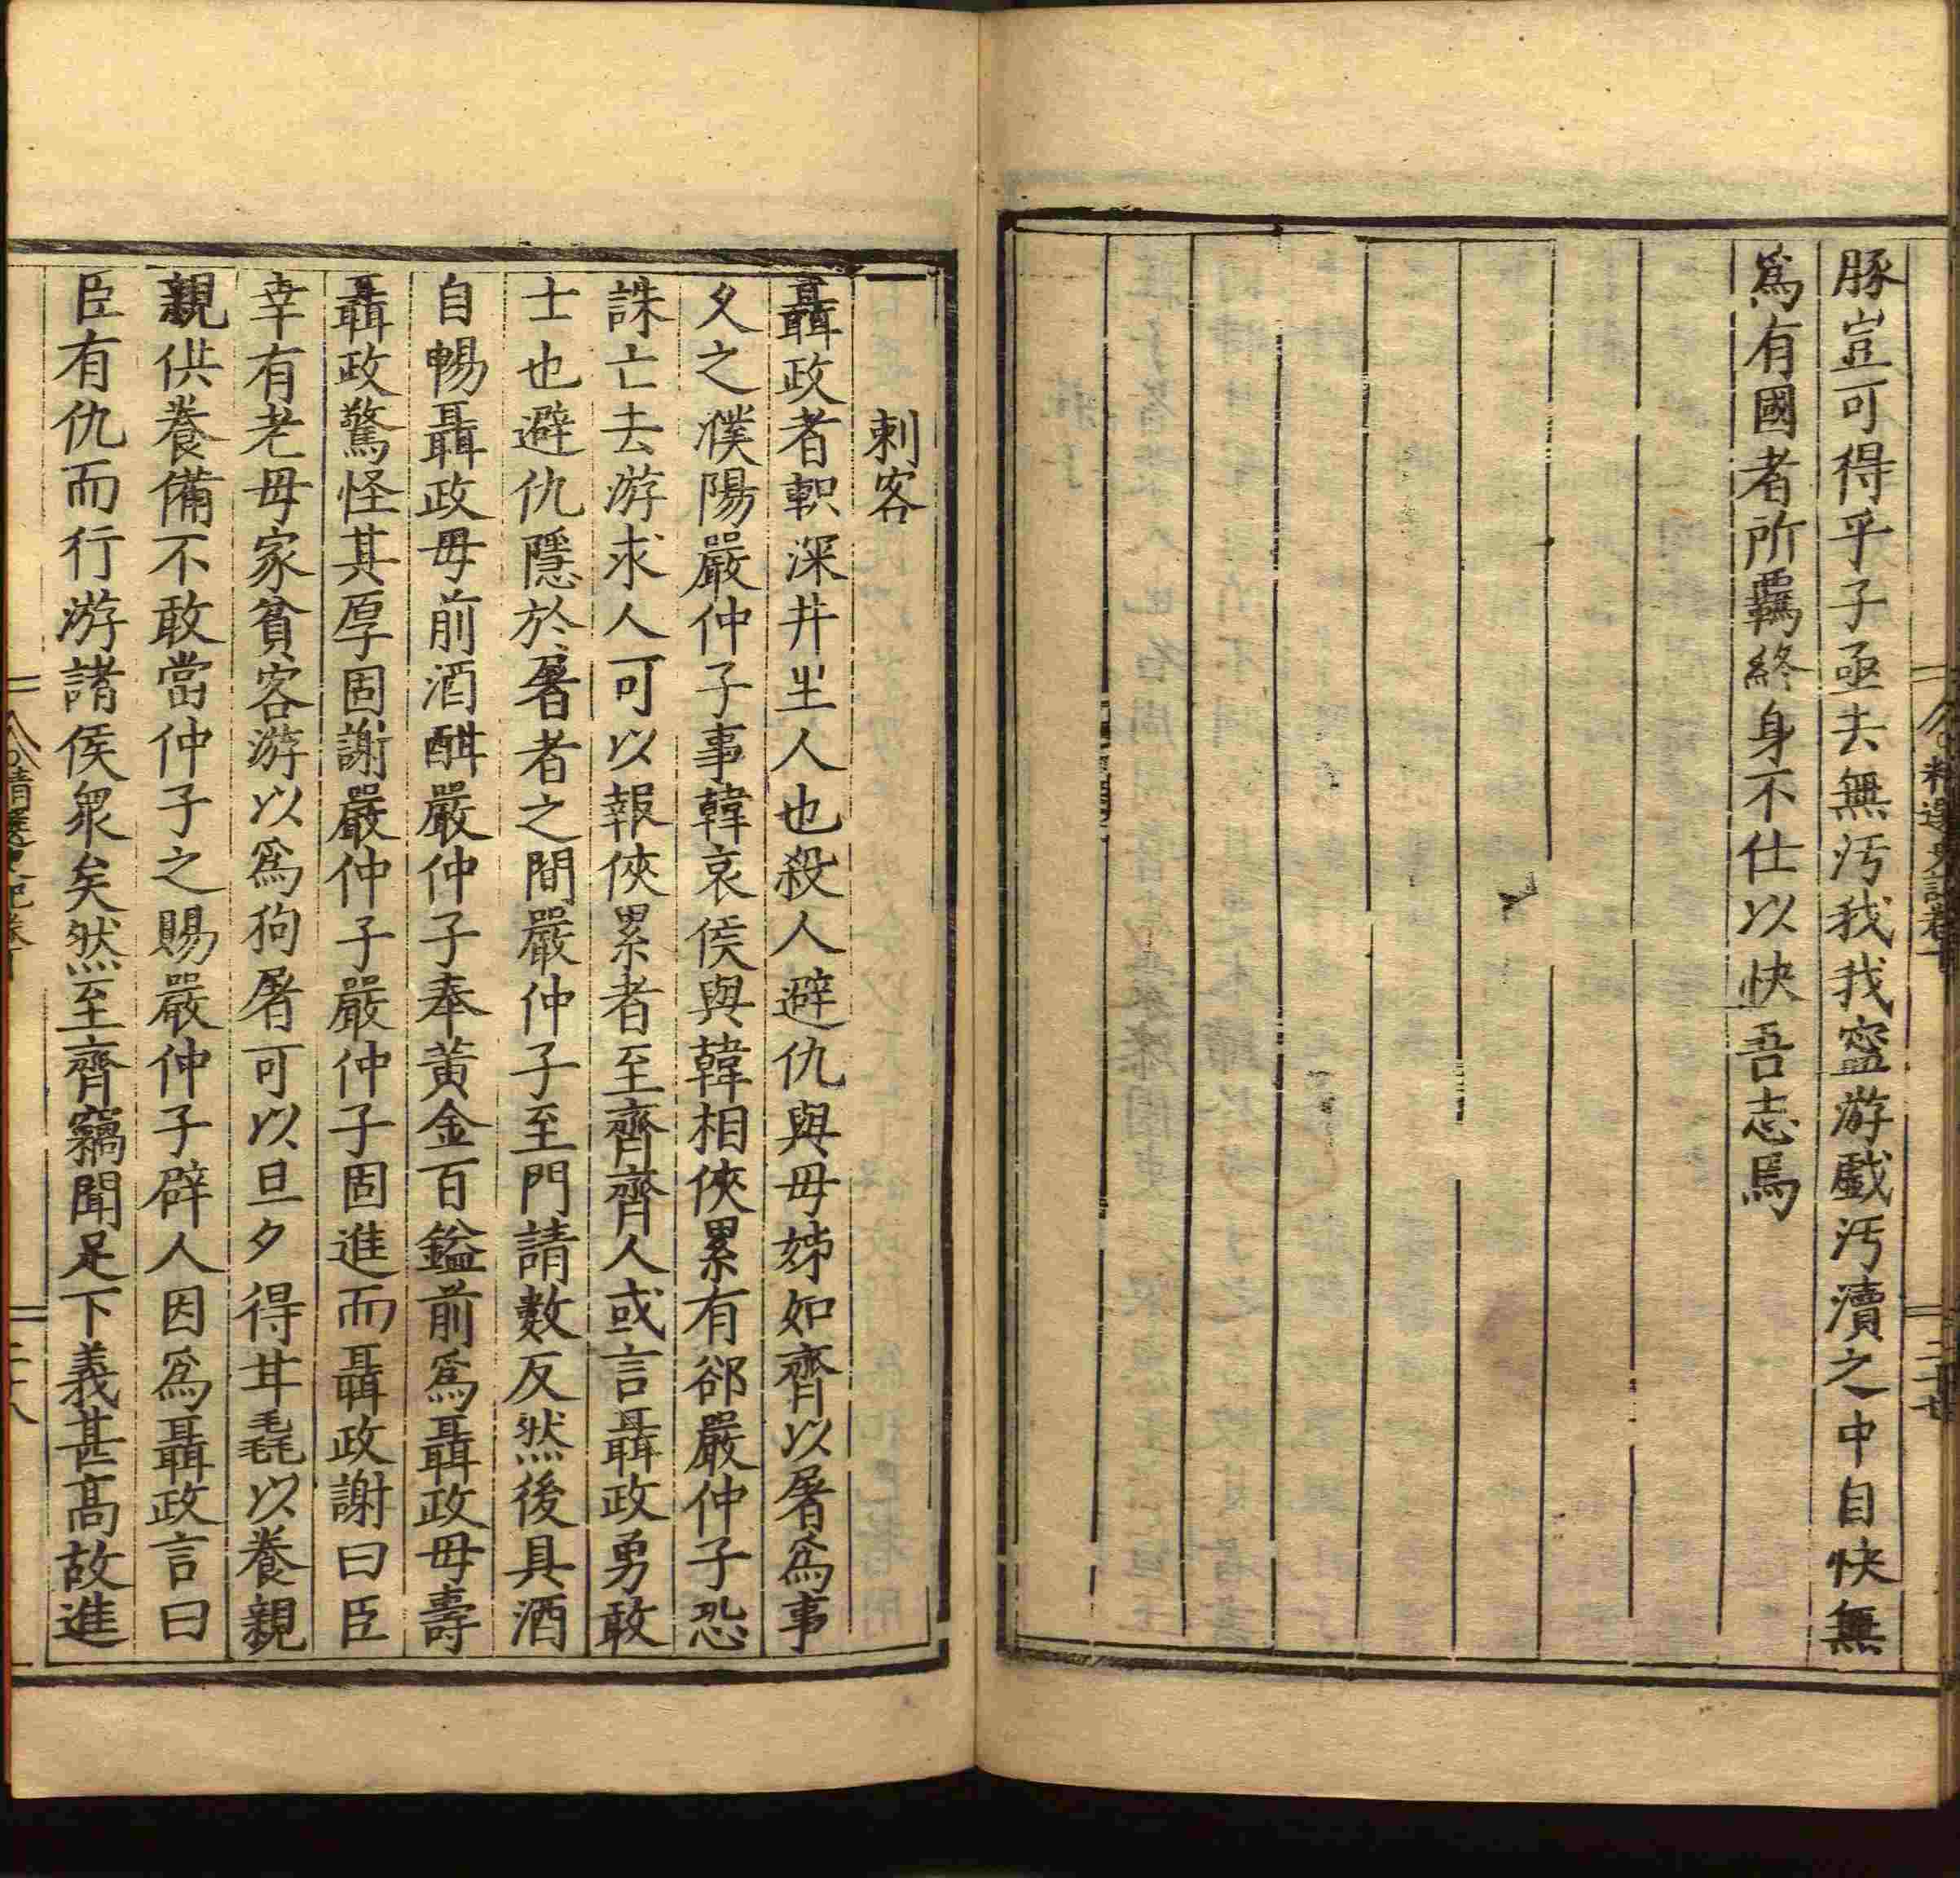 豚豈可得乎子亟去無汚我我寧游戯汚瀆之中自快無
爲有國者所羈終身不仕以快吾志焉
刺客
聶政者軹深井里人也殺人避仇與母姊如齊以屠爲事
久之濮陽嚴仲子事韓哀侯與韓相俠累有郤嚴仲子恐
誅亡去游求人可以報俠累者至齊齊人或言聶政勇敢
士也避仇隱於屠者之間嚴仲子至門請數反然後具酒
自暢聶政母前酒酣嚴仲子奉黃金百鎰前爲聶政母壽
聶政驚怪其厚固謝嚴仲子嚴仲子固進而聶政謝曰臣
幸有老母家貧客游以爲狗屠可以旦夕得甘毳以養親
親供養備不敢當仲子之賜嚴仲子辟人因爲聶政言曰
臣有仇而行游諸侯衆矣然至齊竊聞足下義甚高故進